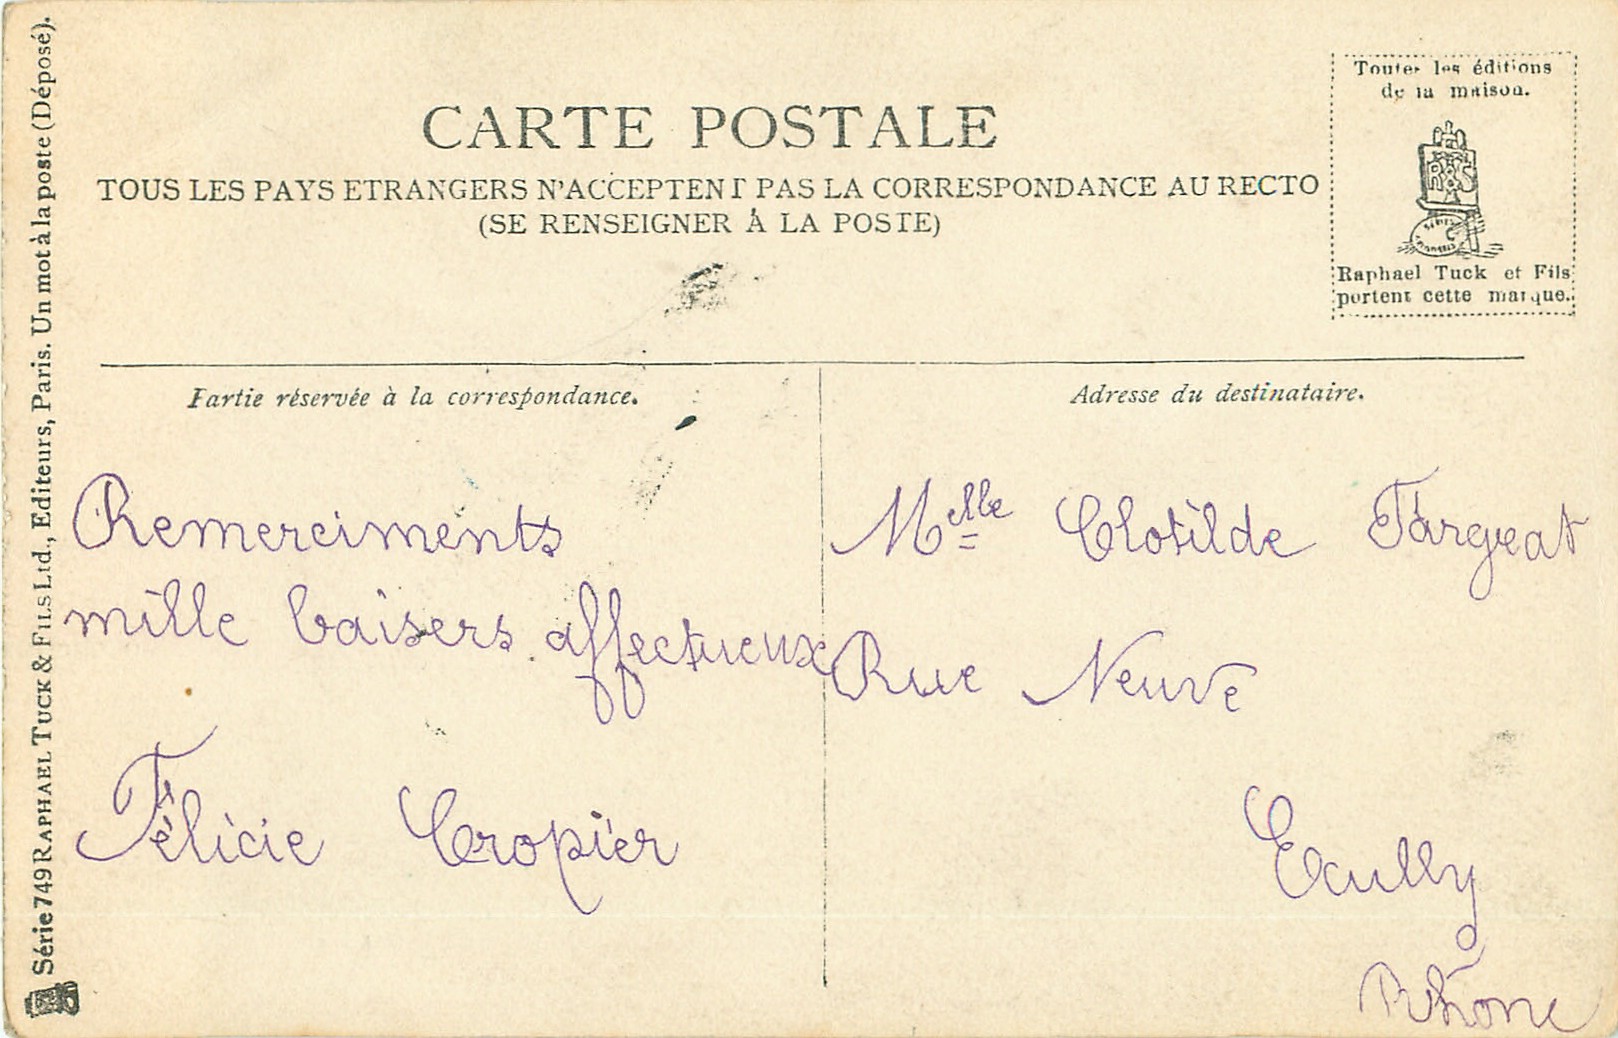 CARTE POSTALE
TOUS LES PAYS ETRANGERS N'ACCEPTENT PAS LA CORRESPONDANCE AU RECTO
(SE RENSEIGNER À LA POSTE)
Toutes les éditions
de la maison.
Raphael Tuck et Fils
portent cette marque.
Partie réservée à la correspondance.
Remerciments
mille baisers affectueux
Félicie Cropier
Adresse du destinataire.
Melle Clotilde Targeat
Rue Neuve
Ecully
Rhône
Série 749 RAPHAEL TUCK & FILS Ltd., Editeurs, Paris. Un mot à la poste (Déposé).